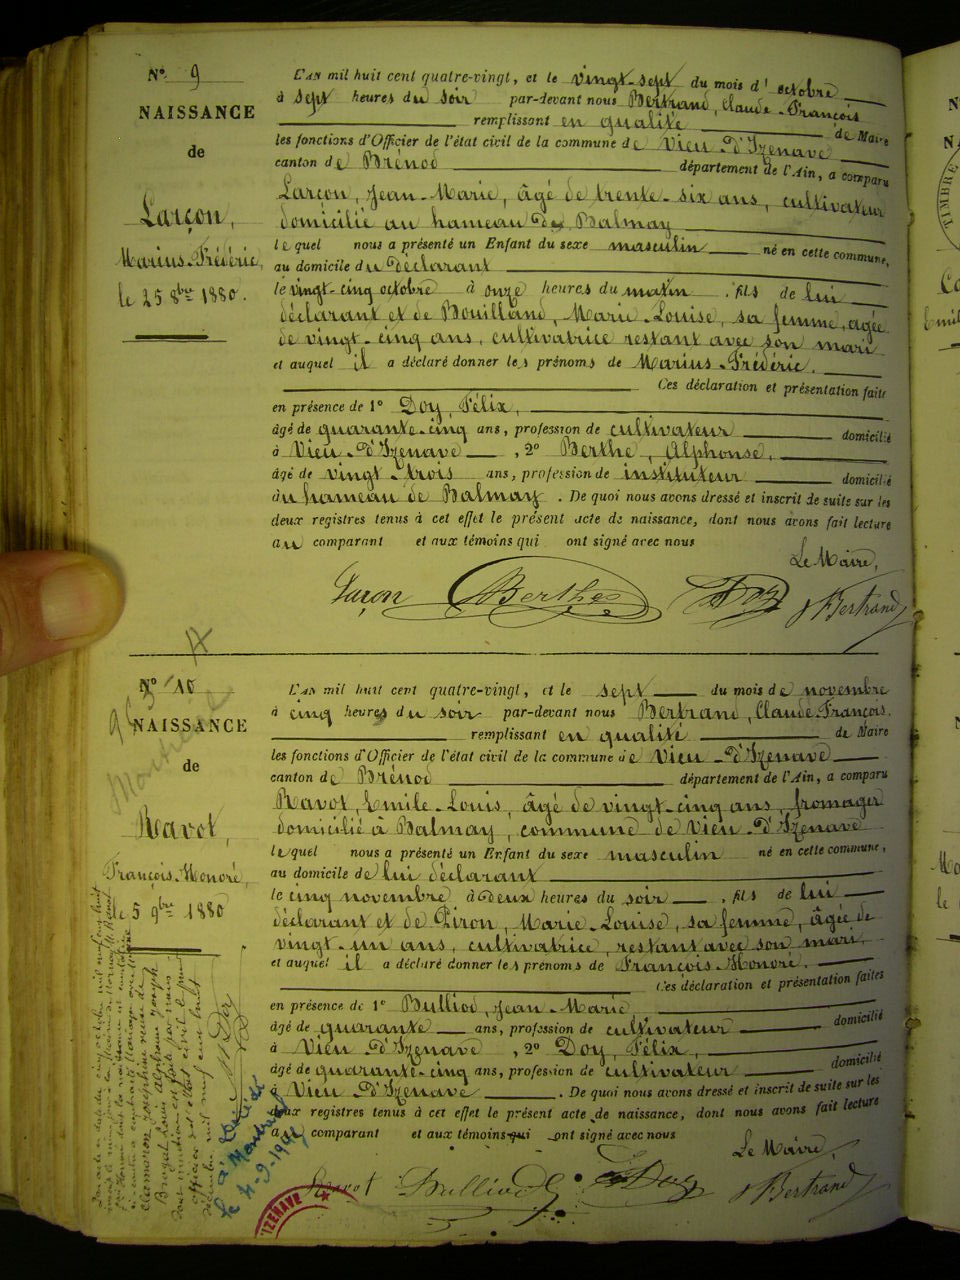 N° 9
NAISSANCE
de
Larçon,
Marius-Frédéric,
le 25 8bre 1880.
L'AN mil huit cent quatre-vingt, et le vingt-sept du mois d'octobre
à sept heures du soir par-devant nous Bertrand, Claude-François
remplissant en qualité de Maire
les fonctions d'Officier de l'état civil de la commune de Vieu-d'Izenave
canton de Brénod département de l'Ain, a comparu
Larçon, Jean-Marie, âgé de trente-six ans, cultivateur
domicilié au hameau de Balmay
lequel nous a présenté un Enfant du sexe masculin né en cette commune,
au domicile du déclarant
le vingt-cinq octobre à onze heures du matin, fils de lui
déclarant et de Bouilland, Marie-Louise, sa femme, agée
de vingt-cinq ans, cultivatrice restant avec son mari
et auquel il a déclaré donner les prénoms de Marius-Frédéric.
Ces déclaration et présentation faites
en présence de 1° Doy, Félix,
âgé de quarante-cinq ans, profession de cultivateur domicilié
à Vieu-d'Izenave, 2° Berthe, Alphonse,
âgé de vingt-trois ans, profession de instituteur domicilié
au hameau de Balmay. De quoi nous avons dressé et inscrit de suite sur les
deux registres tenus à cet effet le présent acte de naissance, dont nous avons fait lecture
au comparant et aux témoins qui ont signé avec nous
Le Maire,
Larçon Berthe Doy Bertrand
N° 10
NAISSANCE
de
Ravot,
François-Honoré,
le 5 9bre 1880
L'AN mil huit cent quatre-vingt, et le sept du mois de novembre
à cinq heures du soir par-devant nous Bertrand, Claude-François.
remplissant en qualité de Maire
les fonctions d'Officier de l'état civil de la commune de Vieu-d'Izenave
canton de Brénod département de l'Ain, a comparu
Ravot, Emile-Louis, âgé de vingt-cinq ans, fromager
domicilié à Balmay, commune de Vieu-d'Izenave
lequel nous a présenté un Enfant du sexe masculin né en cette commune,
au domicile de lui déclarant
le cinq novembre à deux heures du soir, fils de lui
déclarant et de Piron, Marie-Louise, sa femme, âgée de
vingt-un ans, cultivatrice, restant avec son mari,
et auquel il a déclaré donner les prénoms de François-Honoré.
Ces déclaration et présentation faites
en présence de 1° Bulliod, Jean-Marie
âgé de quarante ans, profession de cultivateur domicilié
à Vieu-d'Izenave, 2° Doy, Félix,
âgé de quarante-cinq ans, profession de cultivateur domicilié
à Vieu-d'Izenave. De quoi nous avons dressé et inscrit de suite sur les
deux registres tenus à cet effet le présent acte de naissance, dont nous avons fait lecture
au comparant et aux témoins qui ont signé avec nous
Le Maire,
Ravot Bulliod Doy Bertrand
IZENAVE
TIMBRE